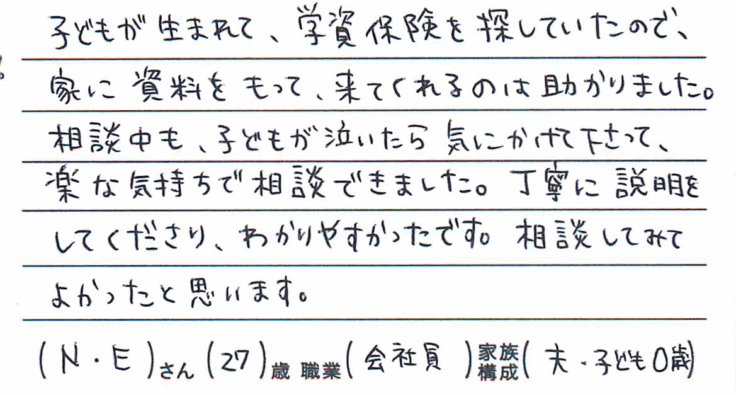 子どもが生まれて、学資保険を探していたので、
家に資料をもって、来てくれるのは助かりました。
相談中も、子どもが泣いたら気にかけて下さって、
楽な気持ちで相談できました。丁寧に説明を
してくださり、わかりやすかったです。相談してみて
よかったと思います。
(N・E)さん(27)歳 職業(会社員)家族構成(夫・子ども0歳)